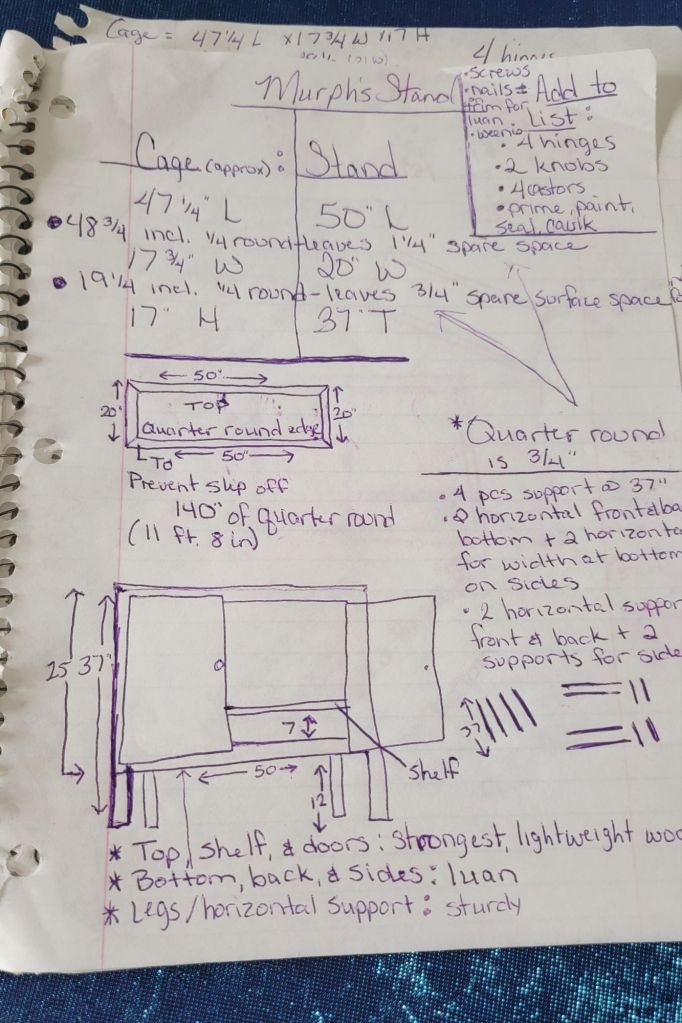 Cage = 47 1/4 L x 17 3/4 W x 17 H
4 hinges
Murph's Stand
• Screws
• nails &
trim for
luan
Add to
List :
• 4 hinges
• 2 knobs
• 4 castors
• prime, paint,
seal, caulk
Cage (approx) :
Stand
47 1/4" L
50" L
• 48 3/4 incl. 1/4 round - leaves 1 1/4" spare space
17 3/4" W
20" W
• 19 1/4 incl. 1/4 round - leaves 3/4" spare surface space
17" H
37" T
50"
20"
TOP
Quarter round edge
20"
50"
To
Prevent slip off
140" of quarter round
(11 ft. 8 in)
* Quarter round
is 3/4"
• 4 pcs support @ 37"
• 2 horizontal front & ba
bottom + 2 horizonta
for width at bottom
on sides
• 2 horizontal suppor
front & back + 2
supports for side
25
37"
7
37
shelf
50
12
* Top, shelf, & doors : strongest, lightweight woo
* Bottom, back, & sides : luan
* Legs/horizontal support : sturdy